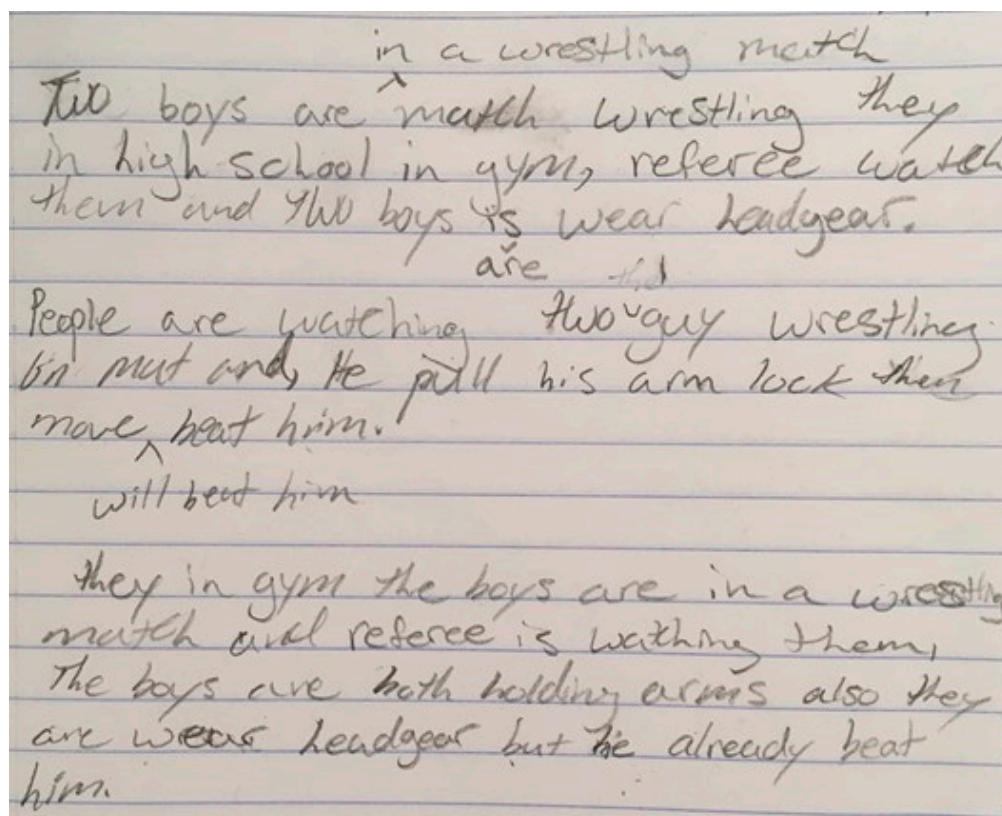 in a wrestling match
Two boys are ^ match wrestling they
in high school in gym, referee watch
them and two boys is wear headgear.
are the
People are watching two guy wrestling
on mat and, He pull his arm lock then
move ^ beat him.
will beat him
they in gym the boys are in a wrestling
match and referee is wathing them,
The boys are both holding arms also they
are wear headgear but he already beat
him.